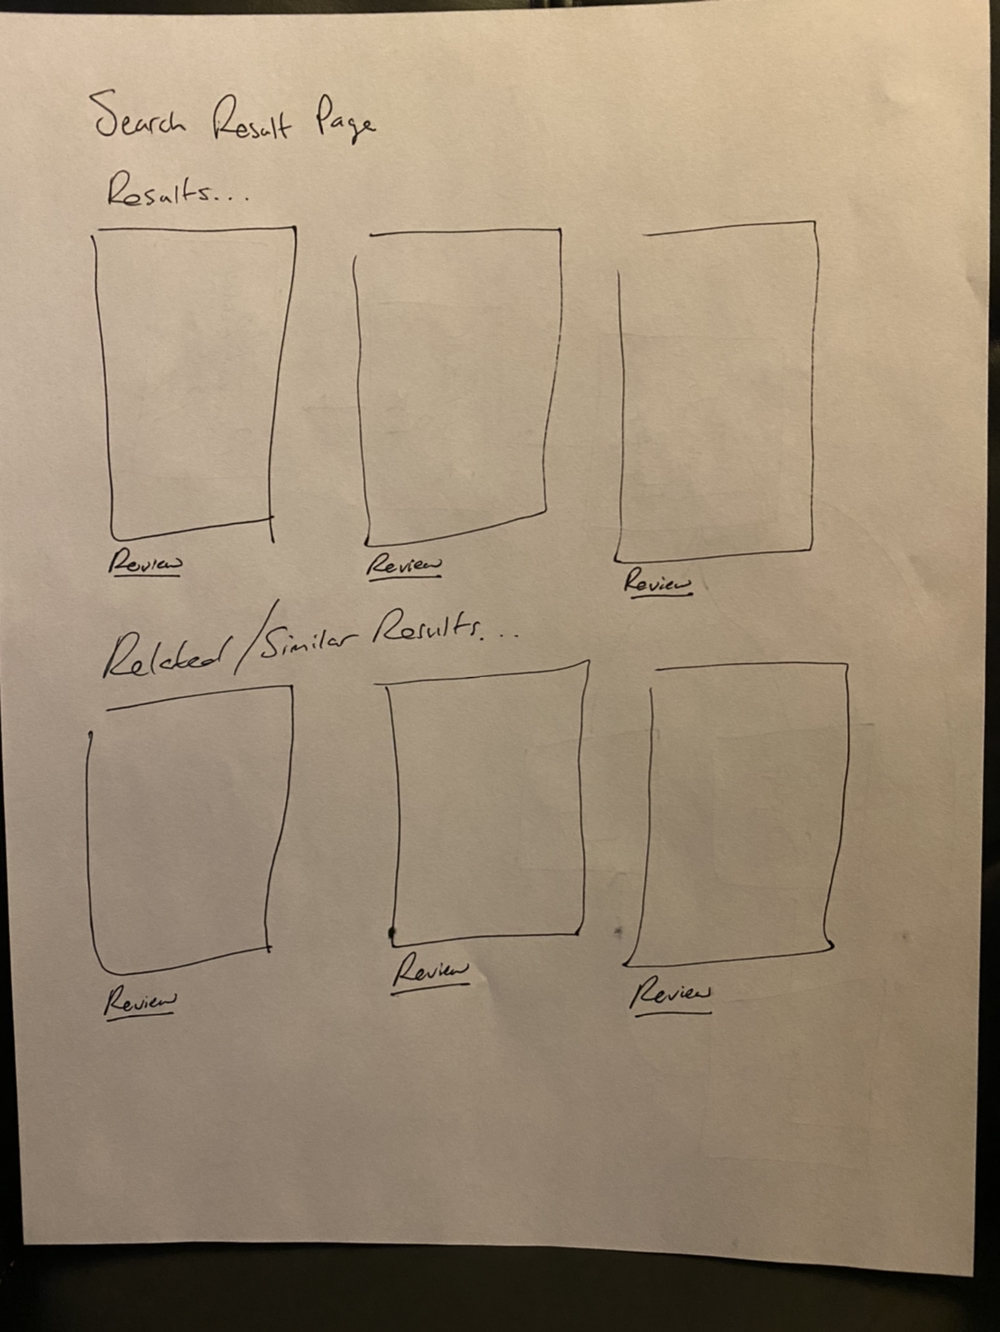 Search Result Page
Results...
Review
Review
Review
Related/Similar Results...
Review
Review
Review